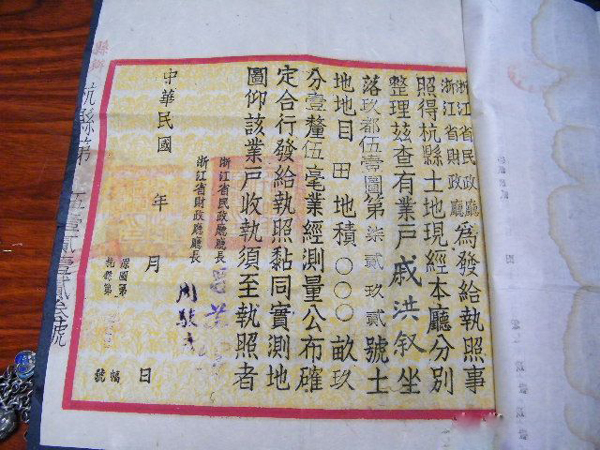 浙江省民政廳
浙江省財政廳
為發給執照事
照得杭縣土地現經本廳分別
整理茲查有業戶戚洪叙坐
落玖都伍壹圖第柒貳玖貳號土
地地目 田 地積〇〇〇畝玖
分壹釐伍毫業經測量公布確
定合行發給執照黏同實測地
圖仰該業戶收執須至執照者
浙江省民政廳廳長
浙江省財政廳廳長 周駿
中華民國 年 月 日
圖第 幅
號
杭縣第 伍壹貳壹貳叁號